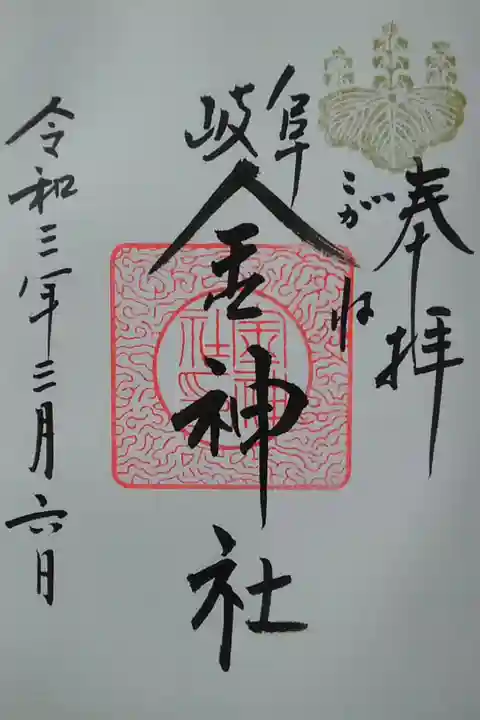 奉拝
こがね
岐阜
金神社
金神社印
令和三年三月六日